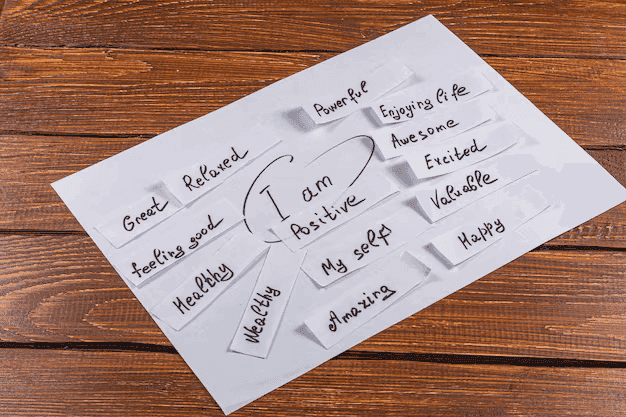 Powerful
Enjoying life
Awesome
Relaxed
Excited
I am
Great
Valuable
Positive
feeling good
Happy
My self
Healthy
Wealthy
Amazing